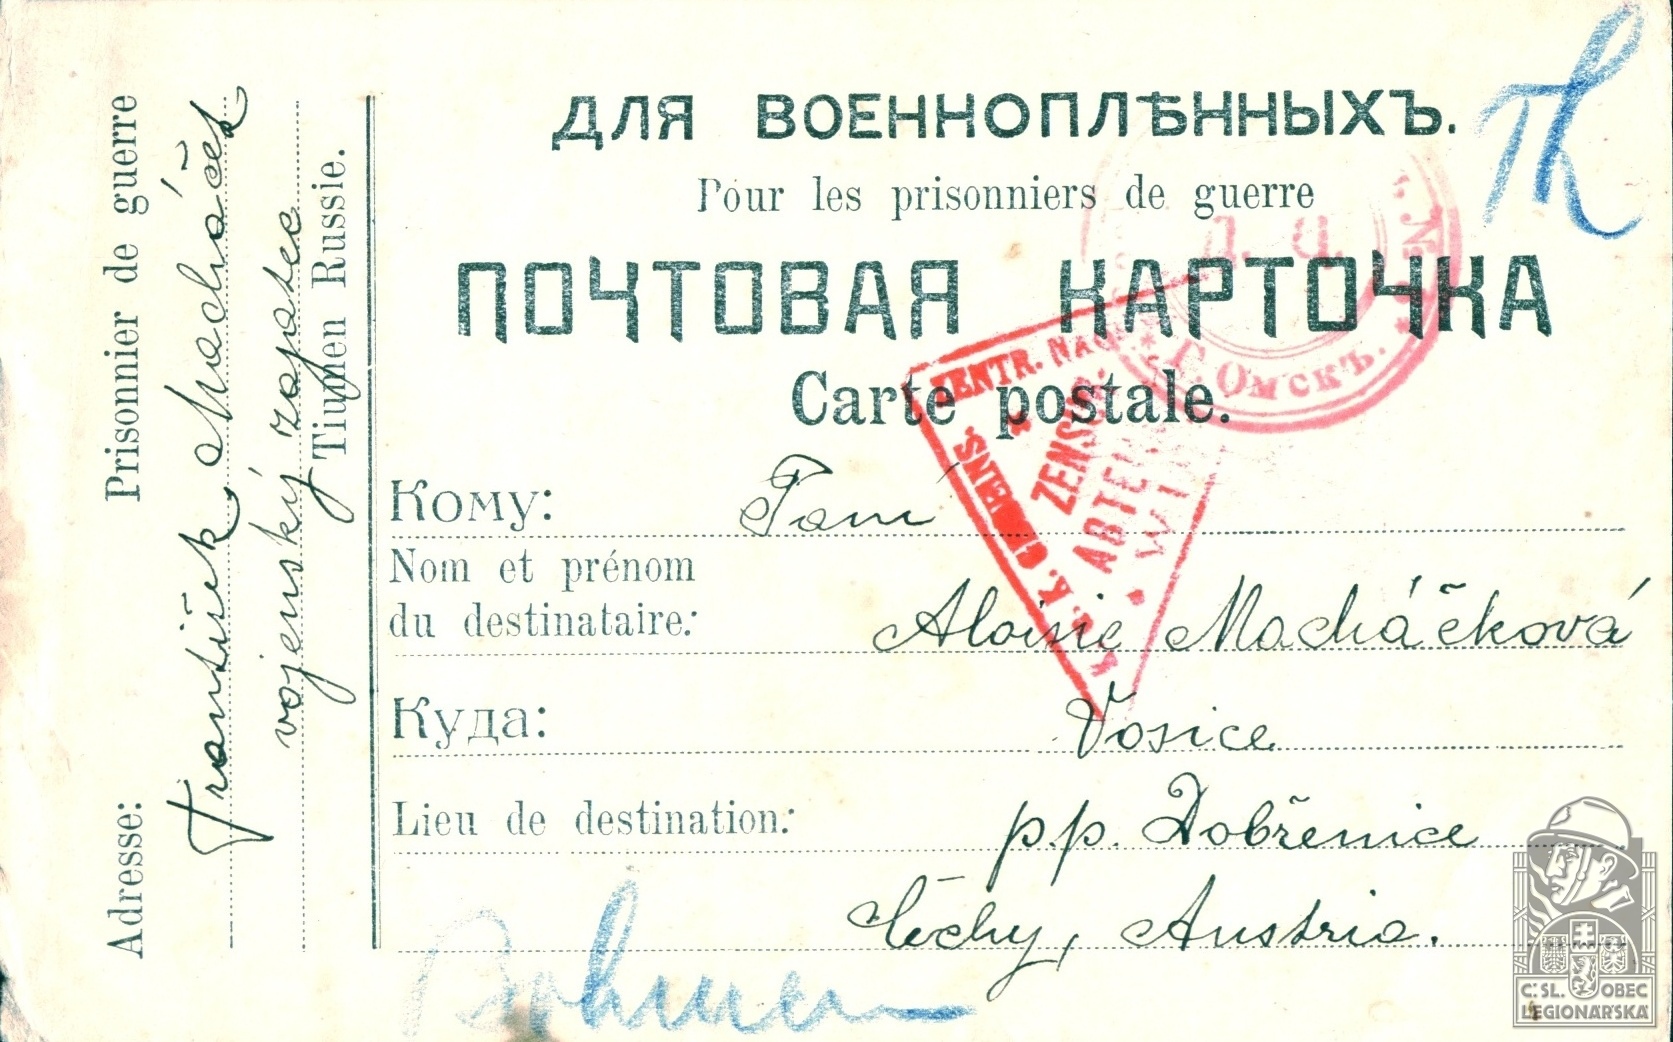 Prisonnier de guerre
Adresse:
František Macháček
vojenský zajatec
Tiumen Russie.
ДЛЯ ВОЕННОПЛѢННЫХЪ.
Pour les prisonniers de guerre
ПОЧТОВАЯ КАРТОЧКА
Carte postale.
Кому: Paní
Nom et prénom
du destinataire: Aloisie Macháčková
Куда: Vosice
Lieu de destination: p.p. Dobřenice
Čechy, Austria.
Böhmen
Г. Омскъ.
ZENSUR
Č. SL. OBEC
LEGIONÁŘSKÁ